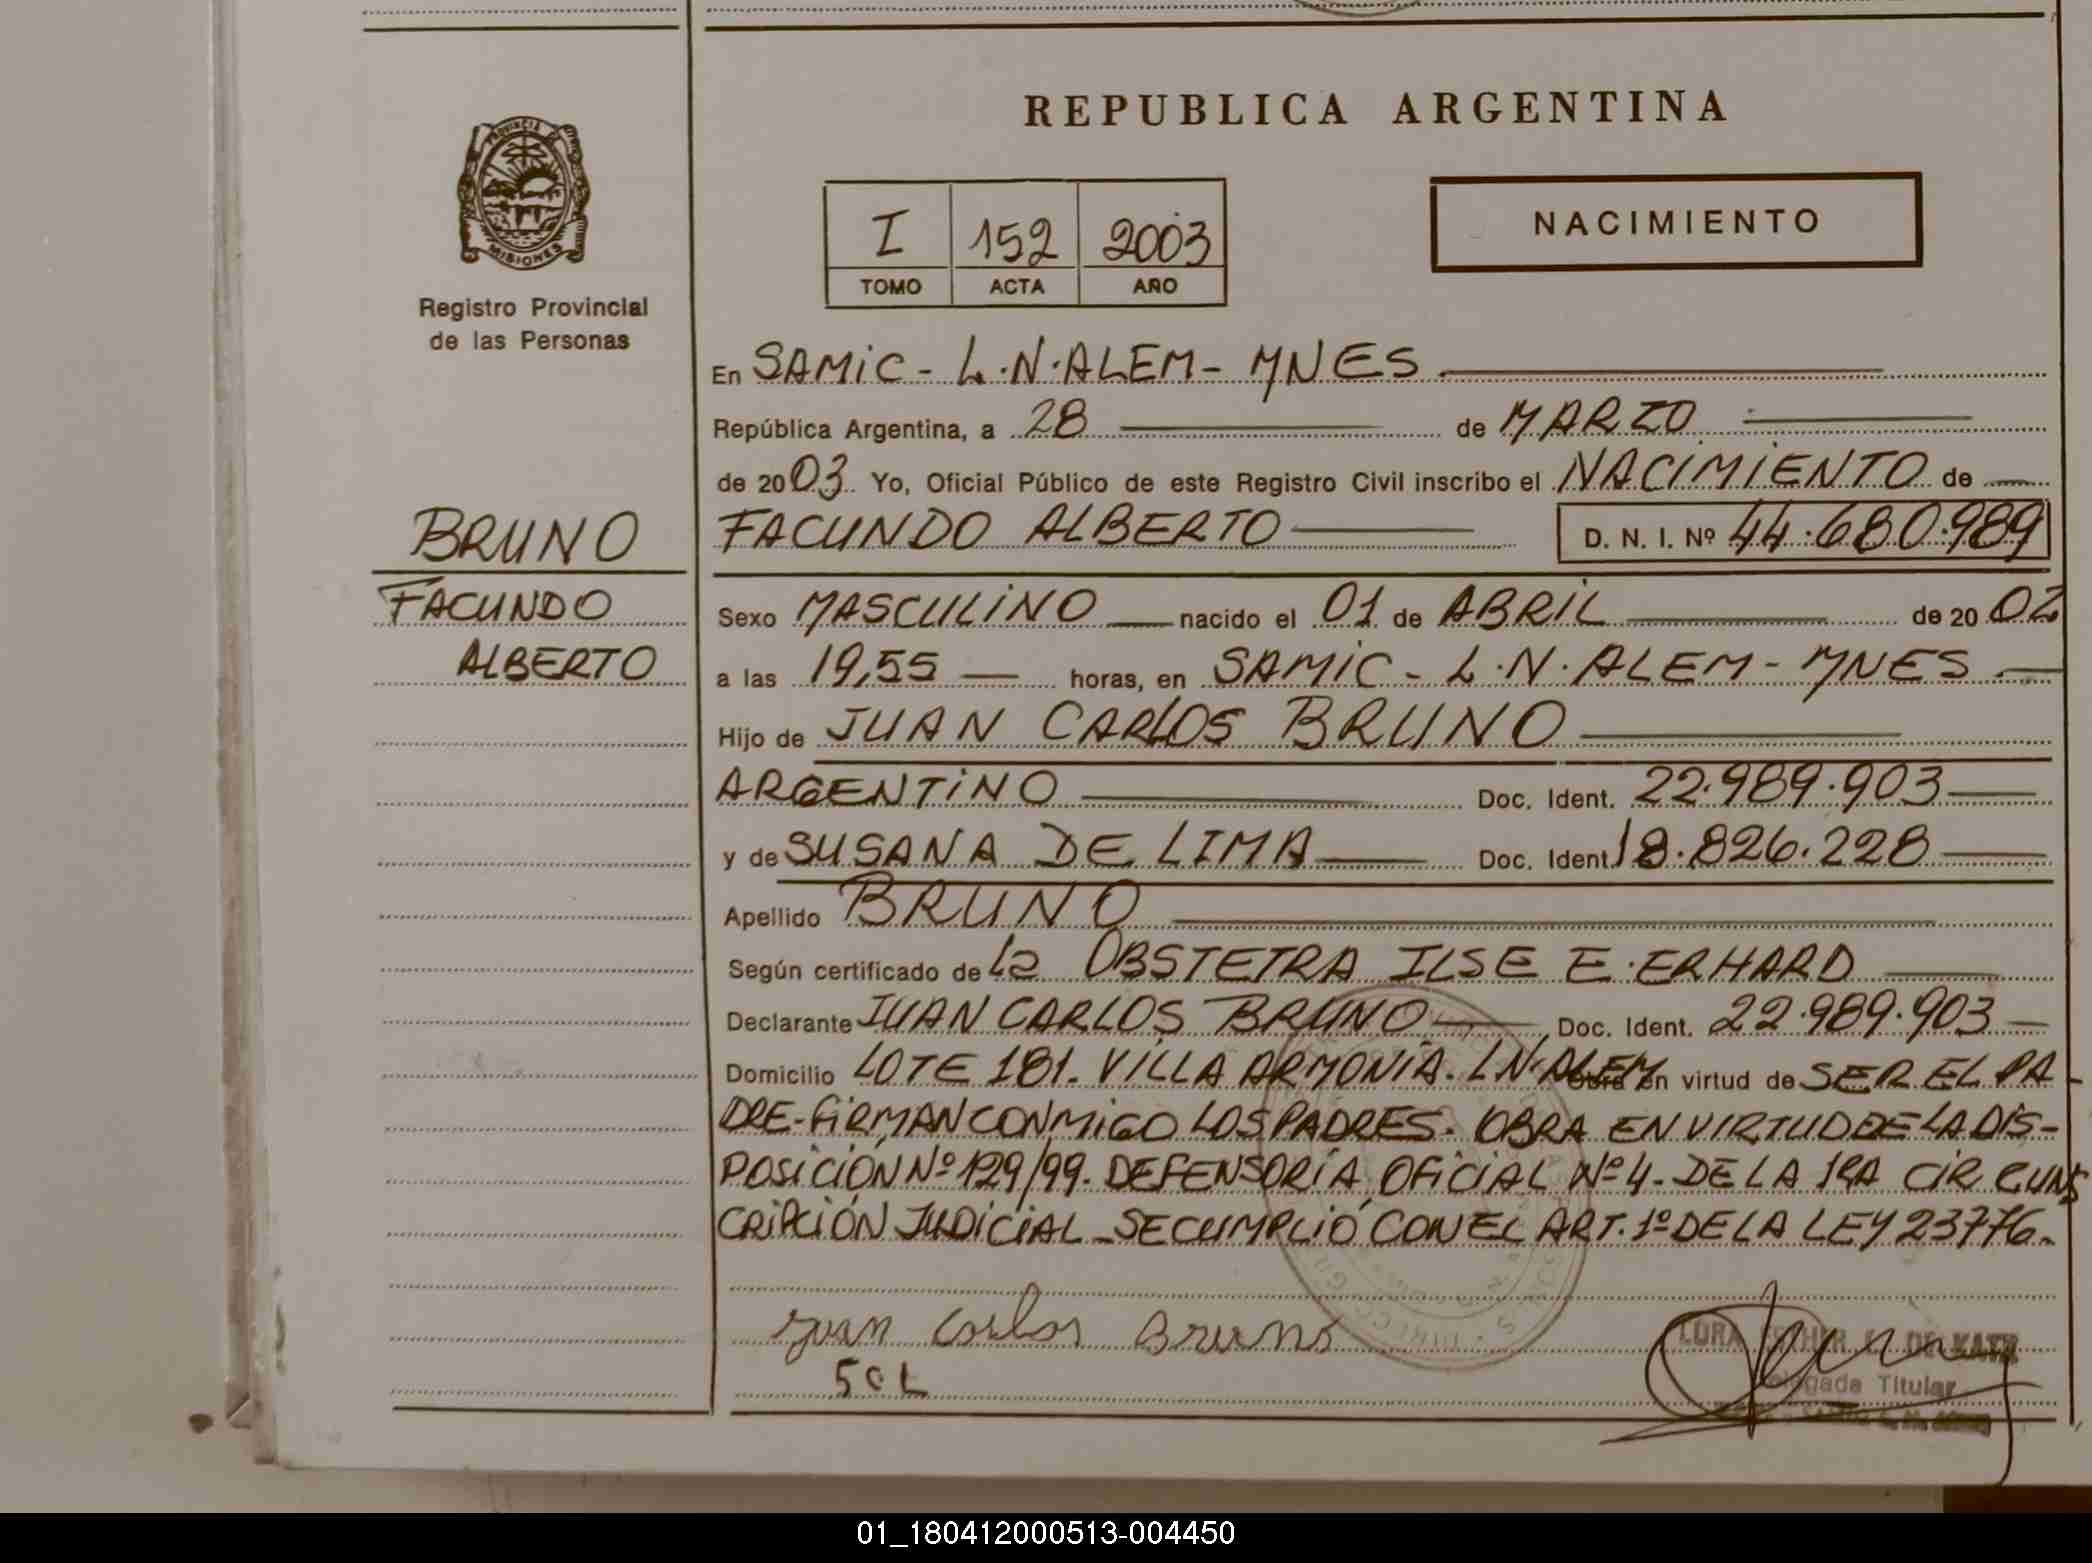 REPUBLICA ARGENTINA
PROVINCIA DE
MISIONES
Registro Provincial
de las Personas
I 152 2003
TOMO ACTA AÑO
NACIMIENTO
En SAMIC - L.N.ALEM - MNES
República Argentina, a 28 de MARZO
de 2003. Yo, Oficial Público de este Registro Civil inscribo el NACIMIENTO de
BRUNO
FACUNDO
ALBERTO
FACUNDO ALBERTO D. N. I. Nº 44.680.989
Sexo MASCULINO nacido el 01 de ABRIL de 2002
a las 19,55 horas, en SAMIC - L.N.ALEM - MNES
Hijo de JUAN CARLOS BRUNO
ARGENTINO Doc. Ident. 22.989.903
y de SUSANA DE LIMA Doc. Ident. 18.826.228
Apellido BRUNO
Según certificado de la OBSTETRA ILSE E. ERHARD
Declarante JUAN CARLOS BRUNO Doc. Ident. 22.989.903
Domicilio LOTE 181. VILLA ARMONIA. L.N.ALEM Obra en virtud de SER EL PA-
DRE-FIRMAN CONMIGO LOS PADRES. OBRA EN VIRTUD DE LA DIS-
POSICIÓN Nº 129/99. DEFENSORÍA OFICIAL Nº 4. DE LA 1RA CIRCUNS
CRIPCIÓN JUDICIAL - SE CUMPLIÓ CON EL ART. 1º DE LA LEY 23776.
Juan Carlos Bruno
Delegada Titular
01_180412000513-004450